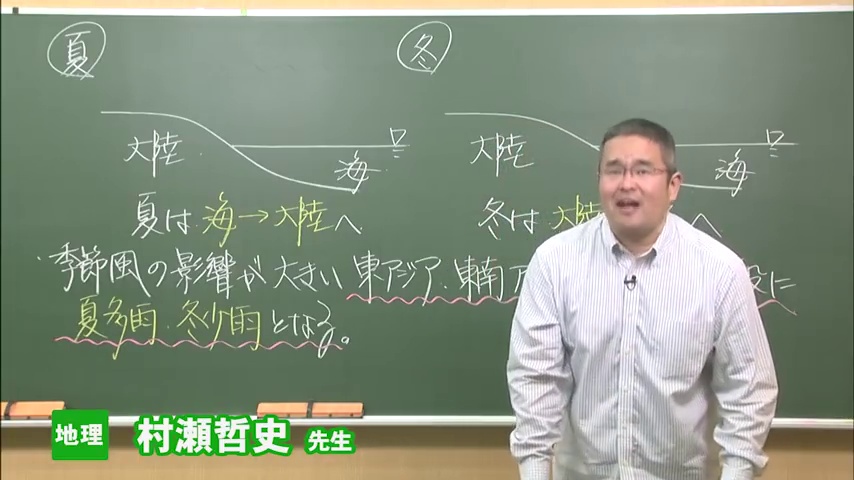 夏
冬
大陸
海
大陸
海
夏は 海→大陸へ
冬は 大陸 へ
・季節風の影響が大きい 東アジア・東南ア 般に
夏多雨・冬少雨となる。
地理 村瀬哲史 先生